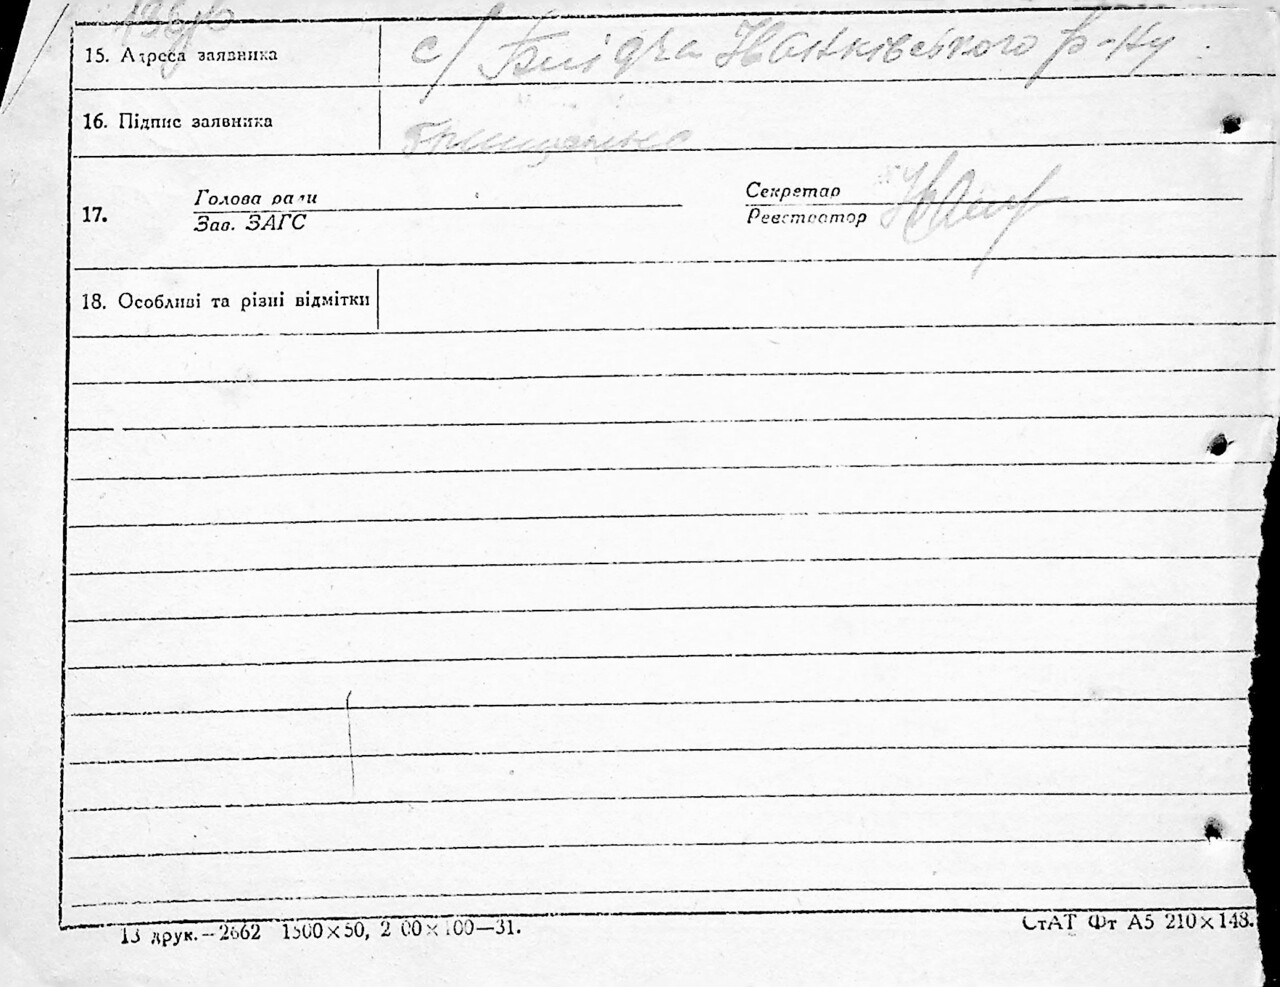 15. Адреса заявника с/ Іванківського р-ну
16. Підпис заявника Грищенко
17. Голова ради Секретар
Зав. ЗАГС Реєстратор
18. Особливі та різні відмітки
13 друк.—2662 1500×50, 2 00×100—31.
СтАТ Фт А5 210×148.